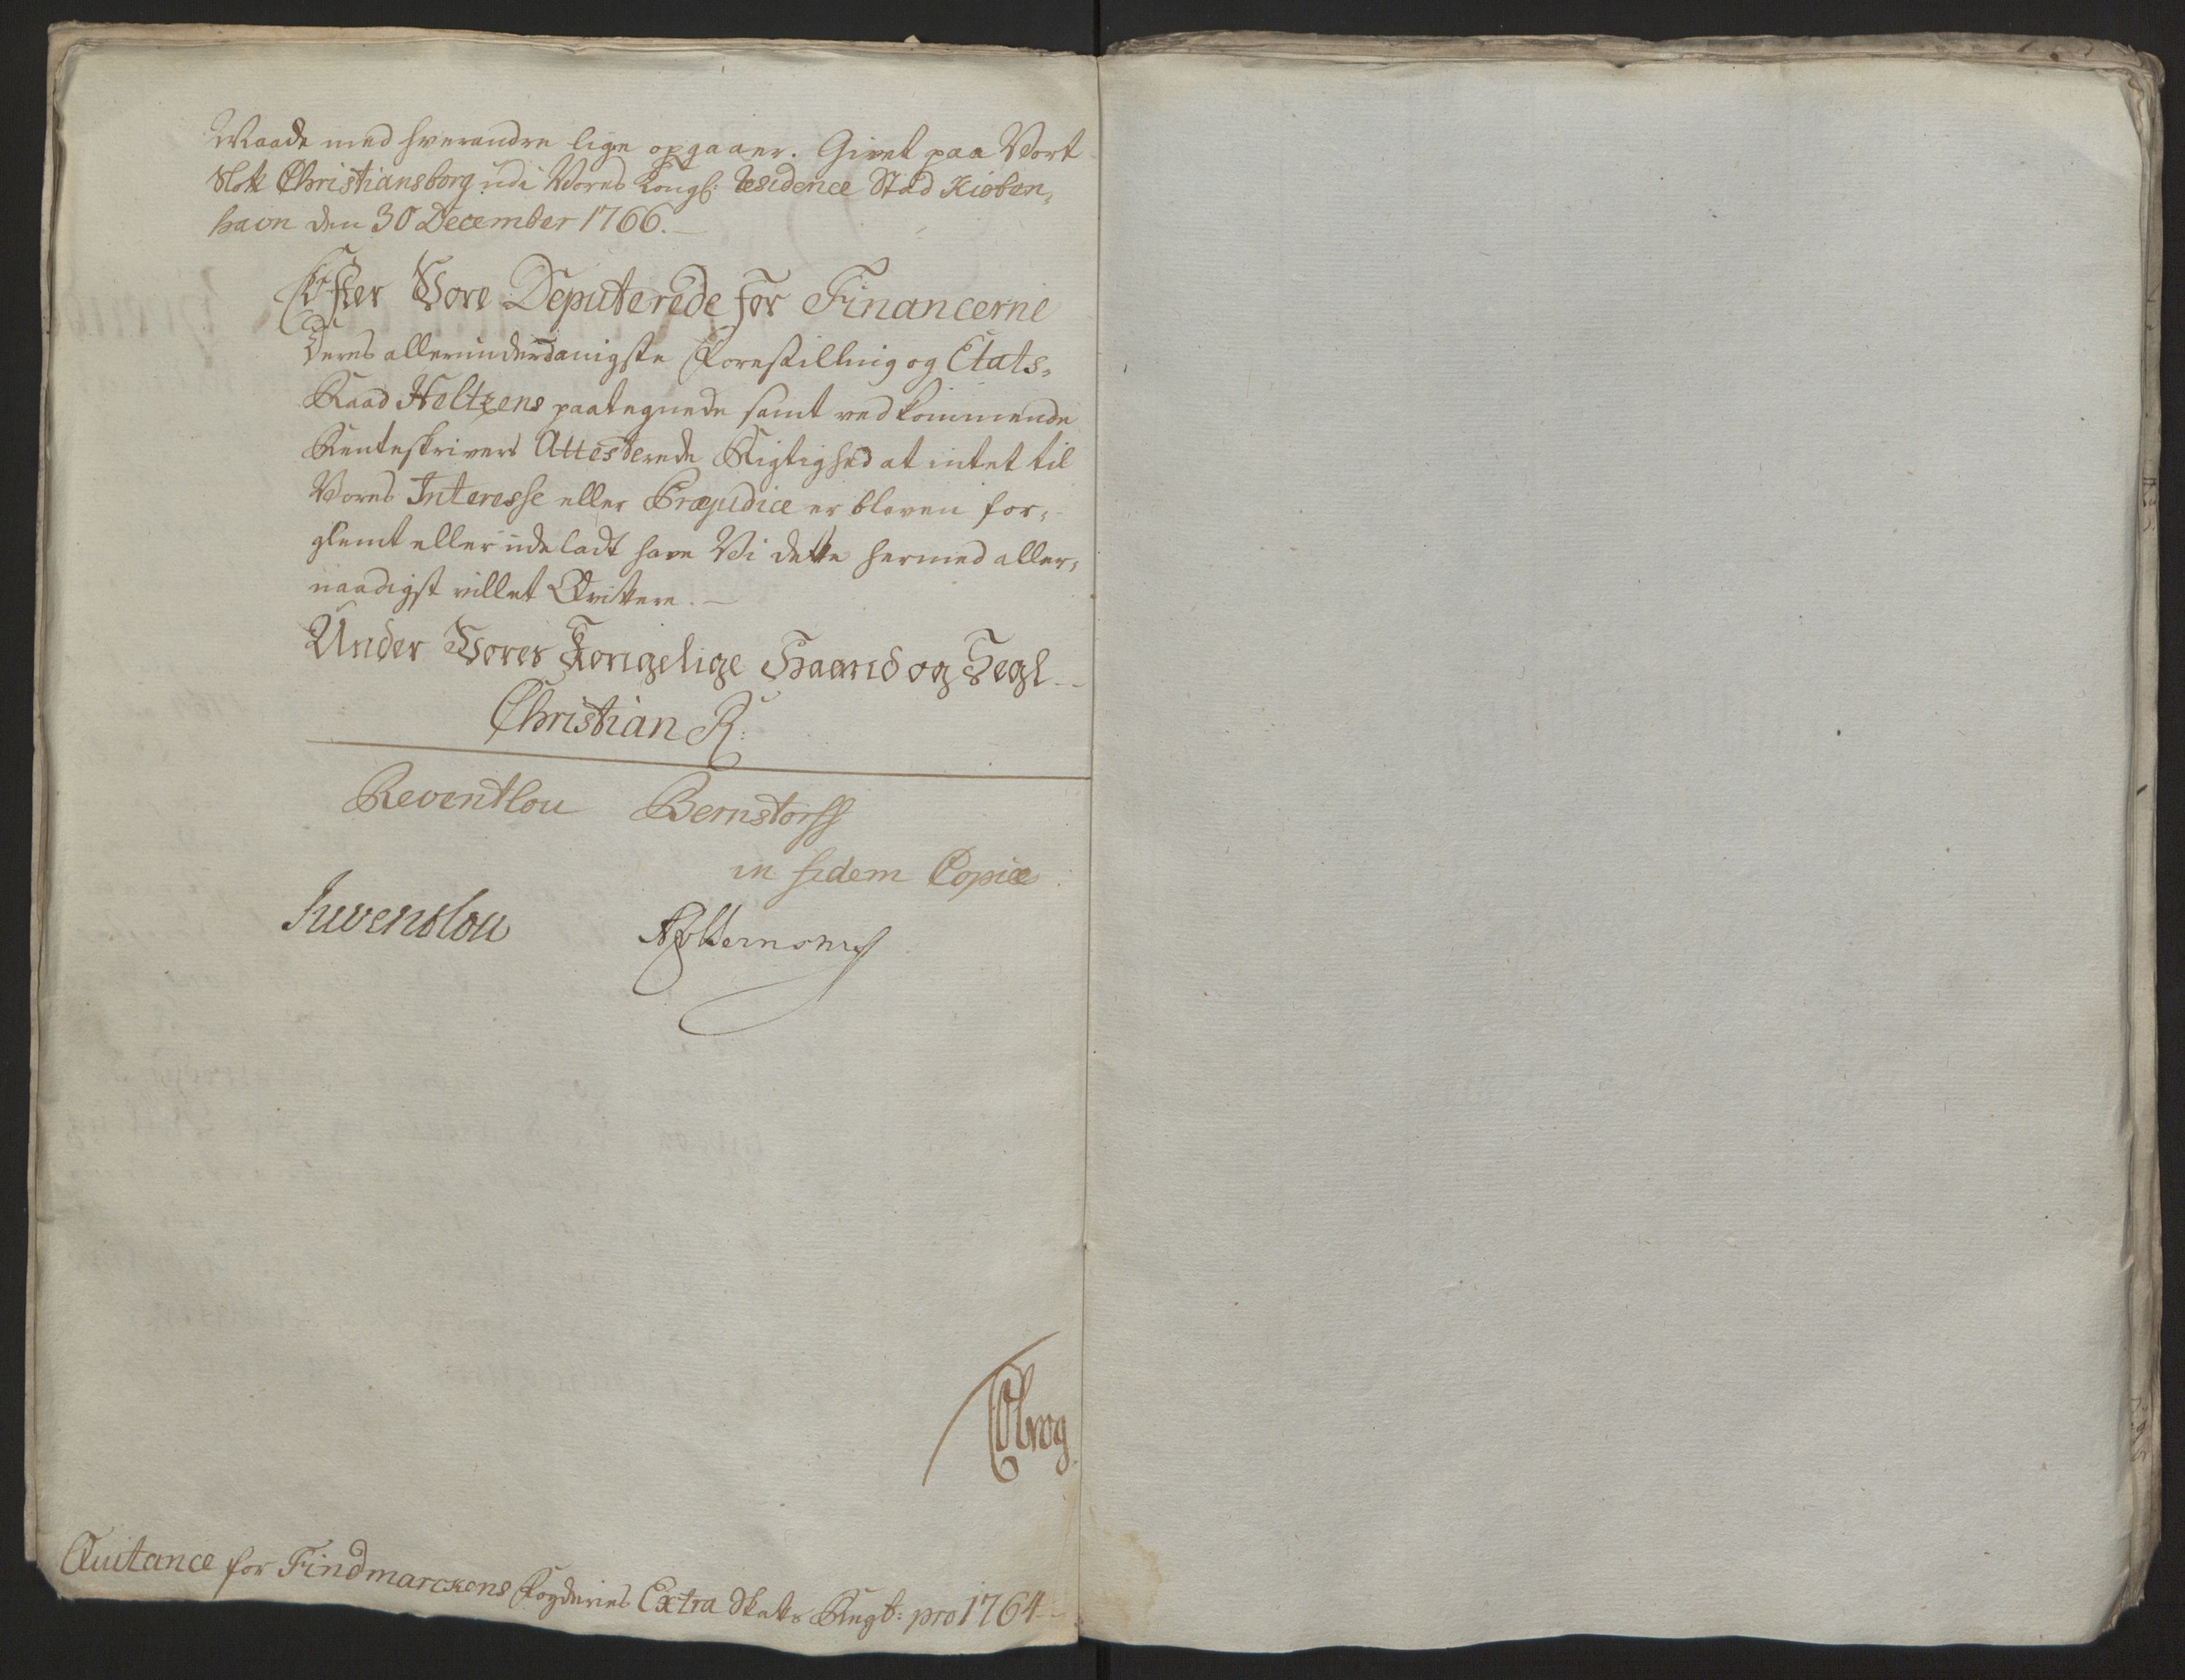 Maade med hverandre lige opgaaer. Givet paa Vort
Slott Christiansborg udi Vores Kongl: Residence Stad Kiøben-
havn den 30 December 1766.
Efter Vore Deputerede for Financerne
Deres allerunderdanigste Forestilling og Etats-
Raad Holtzens paategnede samt vedkommende
Renteskrivers Attesterede Rigtighed at intet til
Vores Interesse eller Præjudice er bleven for-
glemt eller udeladt have Vi dette hermed aller-
naadigst villet Qvittere.
Under Vores Kongelige Haand og Segl
Christian R:
Reventlou Bernstorff
in fidem Copiæ
Reventlou
Qvitance for Findmarckens Fogderies Extra Skatts Regb: pro 1764